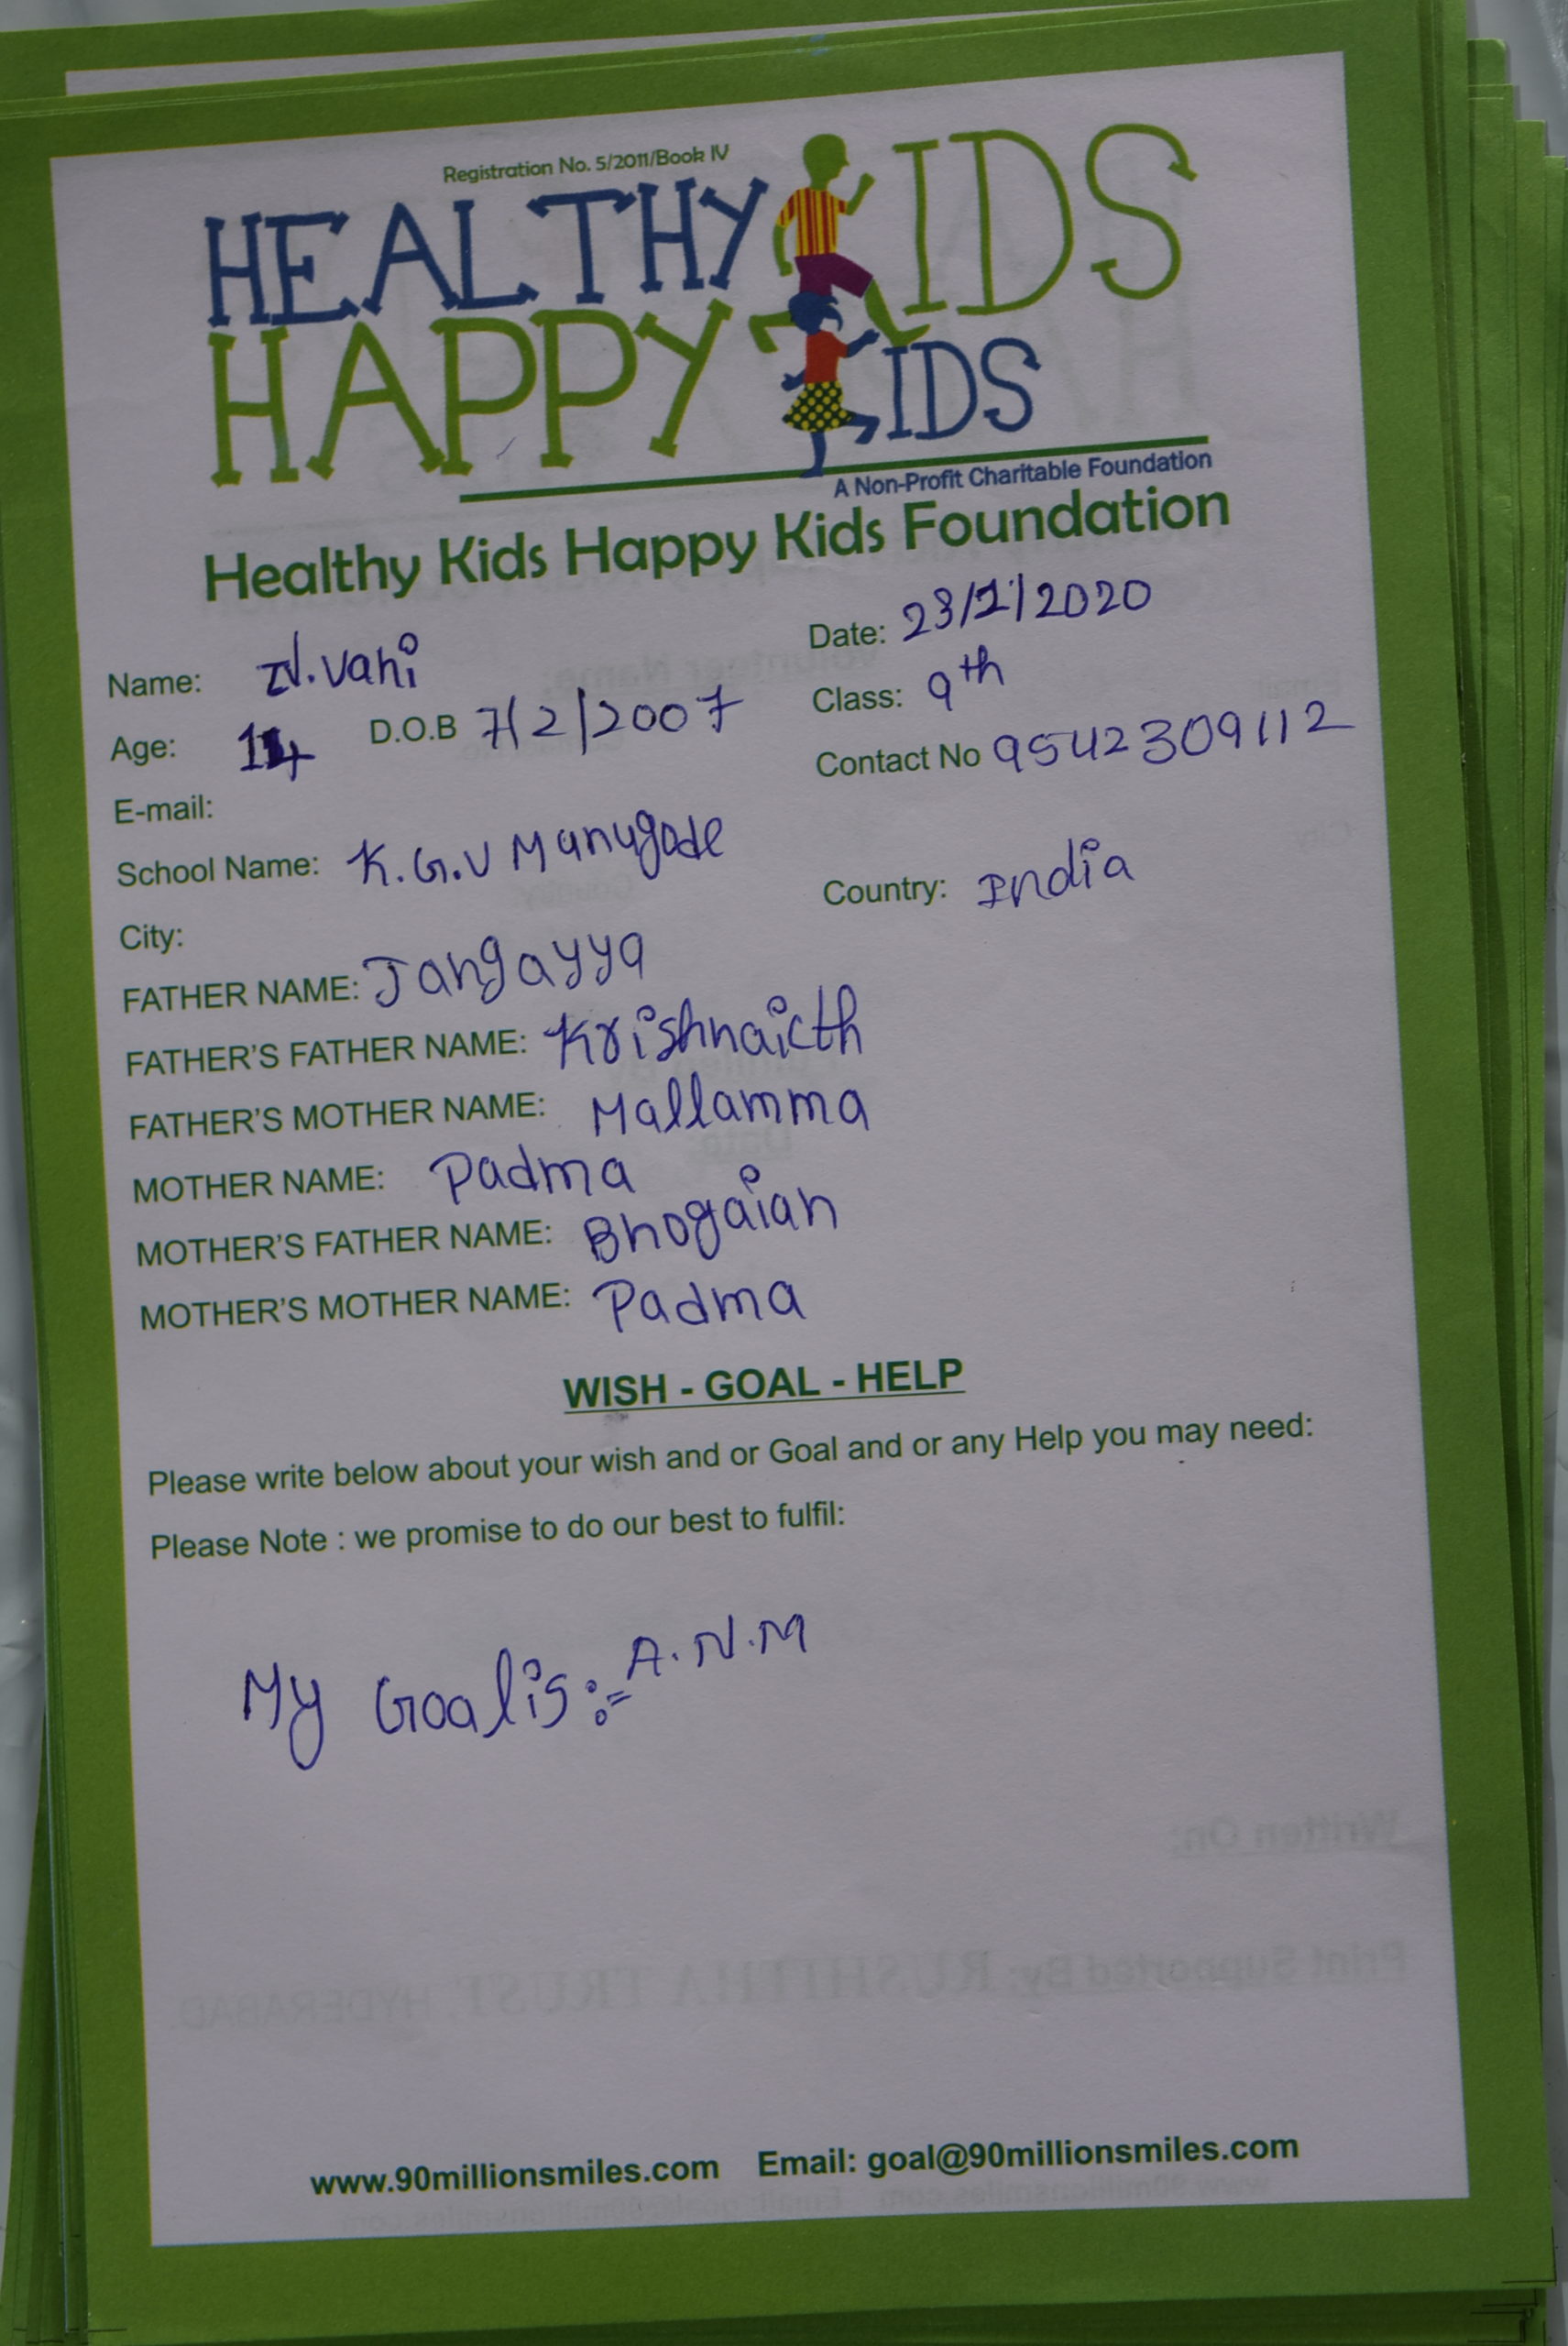 Registration No. 5/2011/Book IV
HEALTHY KIDS
HAPPY KIDS
A Non-Profit Charitable Foundation
Healthy Kids Happy Kids Foundation
Name: N.Vani Date: 23/1/2020
Age: 14 D.O.B 7/2/2007 Class: 9th
E-mail: Contact No 9542309112
School Name: K.G.V Manugode
City: Country: India
FATHER NAME: Jangayya
FATHER'S FATHER NAME: Krishnaicth
FATHER'S MOTHER NAME: Mallamma
MOTHER NAME: Padma
MOTHER'S FATHER NAME: Bhogaiah
MOTHER'S MOTHER NAME: Padma
WISH - GOAL - HELP
Please write below about your wish and or Goal and or any Help you may need:
Please Note : we promise to do our best to fulfil:
My Goal is :- A.N.M
Written On:
Print Supported By: RUSHITHA TRUST, HYDERABAD.
www.90millionsmiles.com Email: goal@90millionsmiles.com